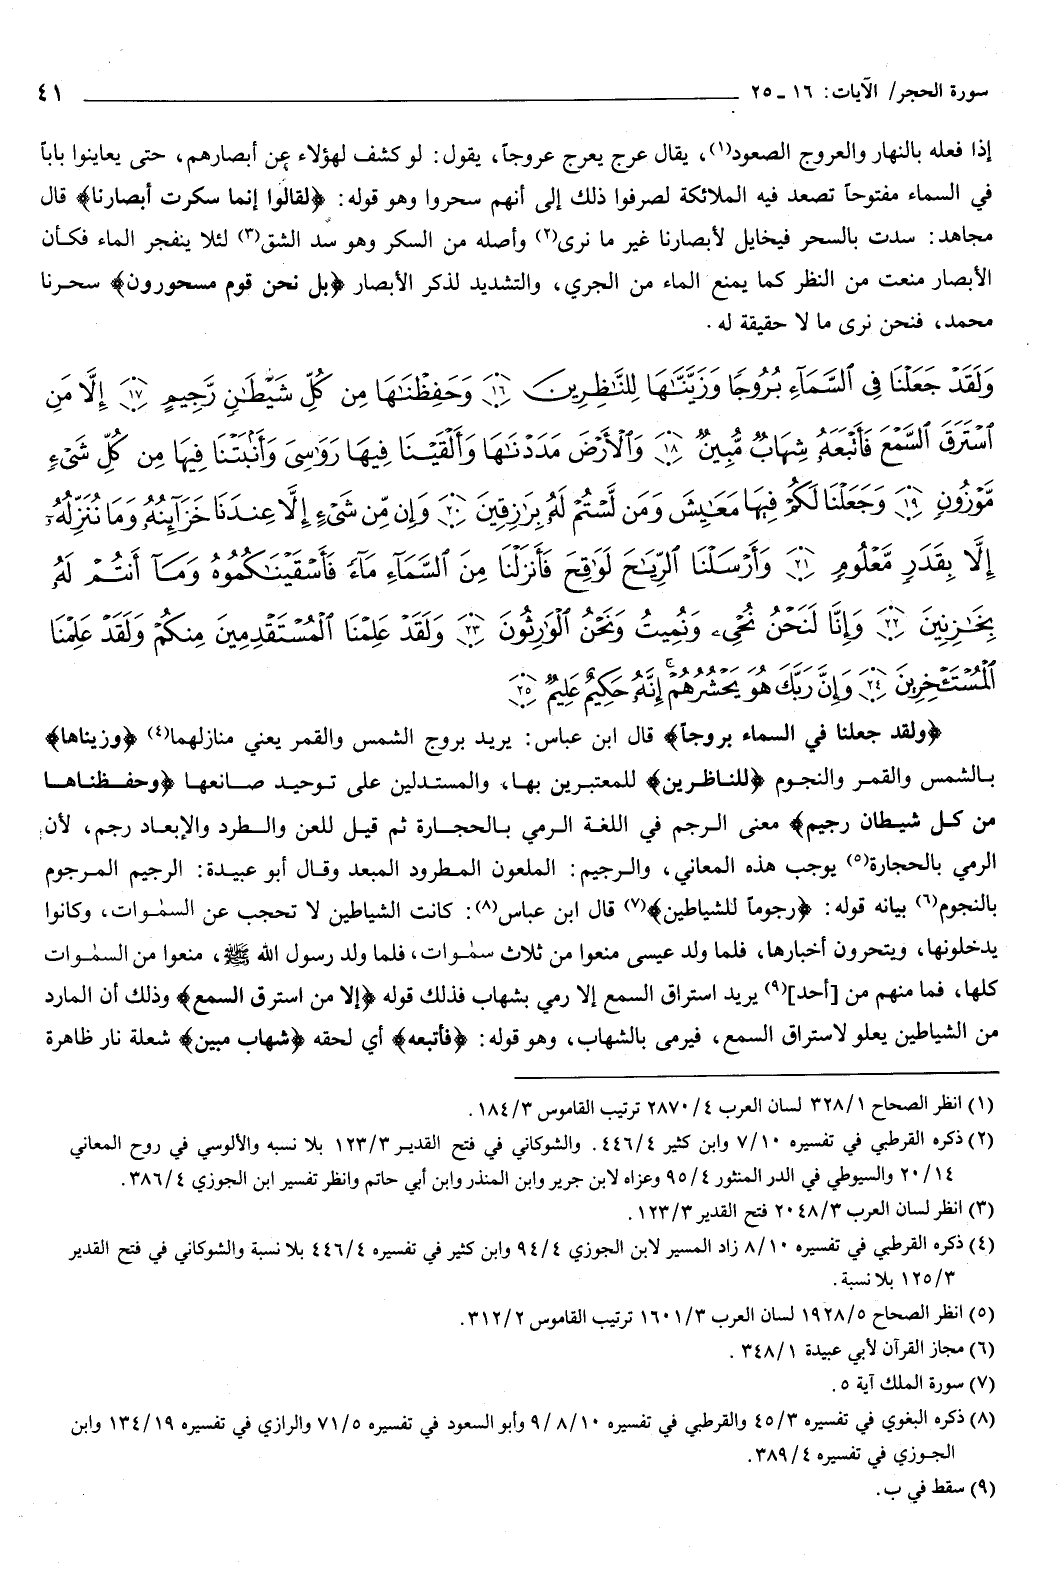 سورة الحجر/ الآيات: ١٦ ـ ٢٥ ٤١
إذا فعله بالنهار والعروج الصعود(١)، يقال عرج يعرج عروجاً، يقول: لو كشف لهؤلاء عن أبصارهم، حتى يعاينوا باباً
في السماء مفتوحاً تصعد فيه الملائكة لصرفوا ذلك إلى أنهم سحروا وهو قوله: ﴿لقالوا إنما سكرت أبصارنا﴾ قال
مجاهد: سدت بالسحر فيخايل لأبصارنا غير ما نرى(٢) وأصله من السكر وهو سد الشق(٣) لئلا ينفجر الماء فكأن
الأبصار منعت من النظر كما يمنع الماء من الجري، والتشديد لذكر الأبصار ﴿بل نحن قوم مسحورون﴾ سحرنا
محمد، فنحن نرى ما لا حقيقة له.
وَلَقَدْ جَعَلْنَا فِى ٱلسَّمَآءِ بُرُوجًا وَزَيَّنَّـٰهَا لِلنَّـٰظِرِينَ ١٦ وَحَفِظْنَـٰهَا مِن كُلِّ شَيْطَـٰنٍ رَّجِيمٍ ١٧ إِلَّا مَنِ
ٱسْتَرَقَ ٱلسَّمْعَ فَأَتْبَعَهُۥ شِهَابٌ مُّبِينٌ ١٨ وَٱلْأَرْضَ مَدَدْنَـٰهَا وَأَلْقَيْنَا فِيهَا رَوَٰسِىَ وَأَنۢبَتْنَا فِيهَا مِن كُلِّ شَىْءٍ
مَّوْزُونٍ ١٩ وَجَعَلْنَا لَكُمْ فِيهَا مَعَـٰيِشَ وَمَن لَّسْتُمْ لَهُۥ بِرَٰزِقِينَ ٢٠ وَإِن مِّن شَىْءٍ إِلَّا عِندَنَا خَزَآئِنُهُۥ وَمَا نُنَزِّلُهُۥٓ
إِلَّا بِقَدَرٍ مَّعْلُومٍ ٢١ وَأَرْسَلْنَا ٱلرِّيَـٰحَ لَوَٰقِحَ فَأَنزَلْنَا مِنَ ٱلسَّمَآءِ مَآءً فَأَسْقَيْنَـٰكُمُوهُ وَمَآ أَنتُمْ لَهُۥ
بِخَـٰزِنِينَ ٢٢ وَإِنَّا لَنَحْنُ نُحْىِۦ وَنُمِيتُ وَنَحْنُ ٱلْوَٰرِثُونَ ٢٣ وَلَقَدْ عَلِمْنَا ٱلْمُسْتَقْدِمِينَ مِنكُمْ وَلَقَدْ عَلِمْنَا
ٱلْمُسْتَـْٔخِرِينَ ٢٤ وَإِنَّ رَبَّكَ هُوَ يَحْشُرُهُمْ ۚ إِنَّهُۥ حَكِيمٌ عَلِيمٌ ٢٥
﴿ولقد جعلنا في السماء بروجاً﴾ قال ابن عباس: يريد بروج الشمس والقمر يعني منازلهما(٤) ﴿وزيناها﴾
بالشمس والقمر والنجوم ﴿للناظرين﴾ للمعتبرين بها، والمستدلين على توحيد صانعها ﴿وحفظناها
من كل شيطان رجيم﴾ معنى الرجم في اللغة الرمي بالحجارة ثم قيل للعن والطرد والإبعاد رجم، لأن
الرمي بالحجارة(٥) يوجب هذه المعاني، والرجيم: الملعون المطرود المبعد وقال أبو عبيدة: الرجيم المرجوم
بالنجوم(٦) بيانه قوله: ﴿رجوماً للشياطين﴾(٧) قال ابن عباس(٨): كانت الشياطين لا تحجب عن السمٰوات، وكانوا
يدخلونها، ويتحرون أخبارها، فلما ولد عيسى منعوا من ثلاث سمٰوات، فلما ولد رسول الله ﷺ، منعوا من السمٰوات
كلها، فما منهم من [أحد](٩) يريد استراق السمع إلا رمي بشهاب فذلك قوله ﴿إلا من استرق السمع﴾ وذلك أن المارد
من الشياطين يعلو لاستراق السمع، فيرمى بالشهاب، وهو قوله: ﴿فأتبعه﴾ أي لحقه ﴿شهاب مبين﴾ شعلة نار ظاهرة
(١) انظر الصحاح ٣٢٨/١ لسان العرب ٢٨٧٠/٤ ترتيب القاموس ١٨٤/٣.
(٢) ذكره القرطبي في تفسيره ٧/١٠ وابن كثير ٤٤٦/٤. والشوكاني في فتح القدير ١٢٣/٣ بلا نسبه والألوسي في روح المعاني
٢٠/١٤ والسيوطي في الدر المنثور ٩٥/٤ وعزاه لابن جرير وابن المنذر وابن أبي حاتم وانظر تفسير ابن الجوزي ٣٨٦/٤.
(٣) انظر لسان العرب ٢٠٤٨/٣ فتح القدير ١٢٣/٣.
(٤) ذكره القرطبي في تفسيره ٨/١٠ زاد المسير لابن الجوزي ٩٤/٤ وابن كثير في تفسيره ٤٤٦/٤ بلا نسبة والشوكاني في فتح القدير
١٢٥/٣ بلا نسبة.
(٥) انظر الصحاح ١٩٢٨/٥ لسان العرب ١٦٠١/٣ ترتيب القاموس ٣١٢/٢.
(٦) مجاز القرآن لأبي عبيدة ٣٤٨/١.
(٧) سورة الملك آية ٥.
(٨) ذكره البغوي في تفسيره ٤٥/٣ والقرطبي في تفسيره ٨/١٠ /٩ وأبو السعود في تفسيره ٧١/٥ والرازي في تفسيره ١٣٤/١٩ وابن
الجوزي في تفسيره ٣٨٩/٤.
(٩) سقط في ب.